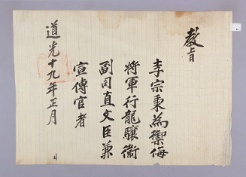 敎旨
李宗秉為禦侮
將軍行龍驤衛
副司直文臣兼
宣傳官者
道光十九年正月 日